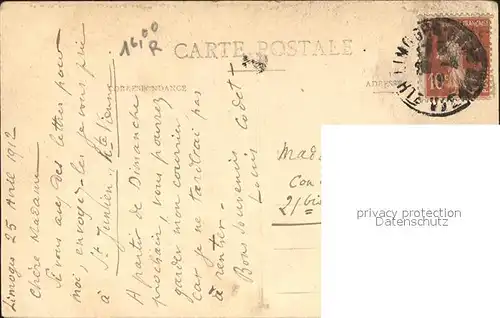 1600
R
CARTE POSTALE
CORRESPONDANCE
ADRESSE
Limoges 25 Avril 1912
Chère Madame
Si vous avez des lettres pour
moi, envoyez-les je vous prie
à St Junien Hte Vienne
A partir de Dimanche
prochain, vous pourrez
garder mon courrier
car je ne tarderai pas
à rentrer -
Bons souvenirs
Louis Codet
Mada
Con
21 bis
LIMOGES
10
privacy protection
Datenschutz